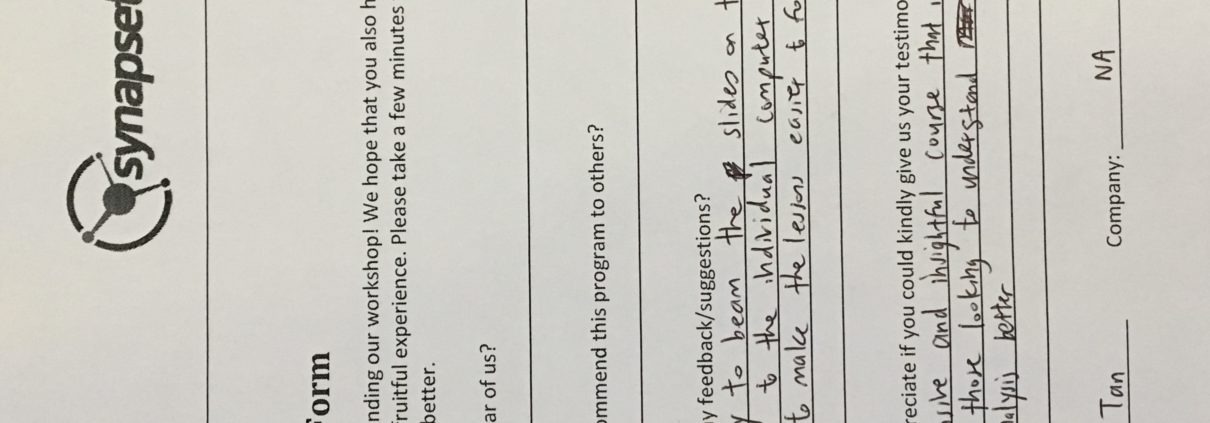 synapse
Form
nding our workshop! We hope that you also h
fruitful experience. Please take a few minutes
better.
ar of us?
ommend this program to others?
y feedback/suggestions?
to beam the slides on t
to the individual computer
to make the lessons easier to fo
reciate if you could kindly give us your testimo
sive and insightful course that
those looking to understand
alysis better
Tan Company: NA